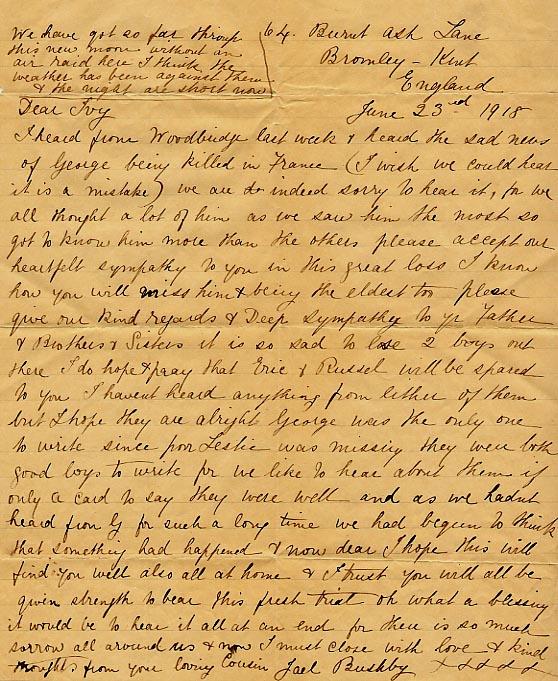 We have got so far through
this new moon without an
air raid here I think the
weather has been against them
& the night are short now
64. Burnt Ash Lane
Bromley - Kent
England
June 23rd 1918
Dear Ivy
I heard from Woodbridge last week & heard the sad news
of George being killed in France (I wish we could hear
it is a mistake) we are do indeed sorry to hear it, for we
all thought a lot of him as we saw him the most so
got to know him more than the others please accept our
heartfelt sympathy to you in this great loss I know
how you will miss him & being the eldest too please
give our kind regards & Deep sympathy to yr Father
& Brothers & Sisters it is so sad to lose 2 boys out
there I do hope & pray that Eric & Russel will be spared
to you I havent heard anything from either of them
but I hope they are alright George was the only one
to write since poor Leslie was missing they were both
good boys to write for we like to hear about them if
only a card to say they were well and as we hadnt
heard from G for such a long time we had begun to think
that something had happened & now dear I hope this will
find you well also all at home & I trust you will all be
given strength to bear this fresh trial oh what a blessing
it would be to hear it all at an end for there is so much
sorrow all around us & now I must close with love & kind
thoughts from your loving Cousin Jael Bushby x x x x x